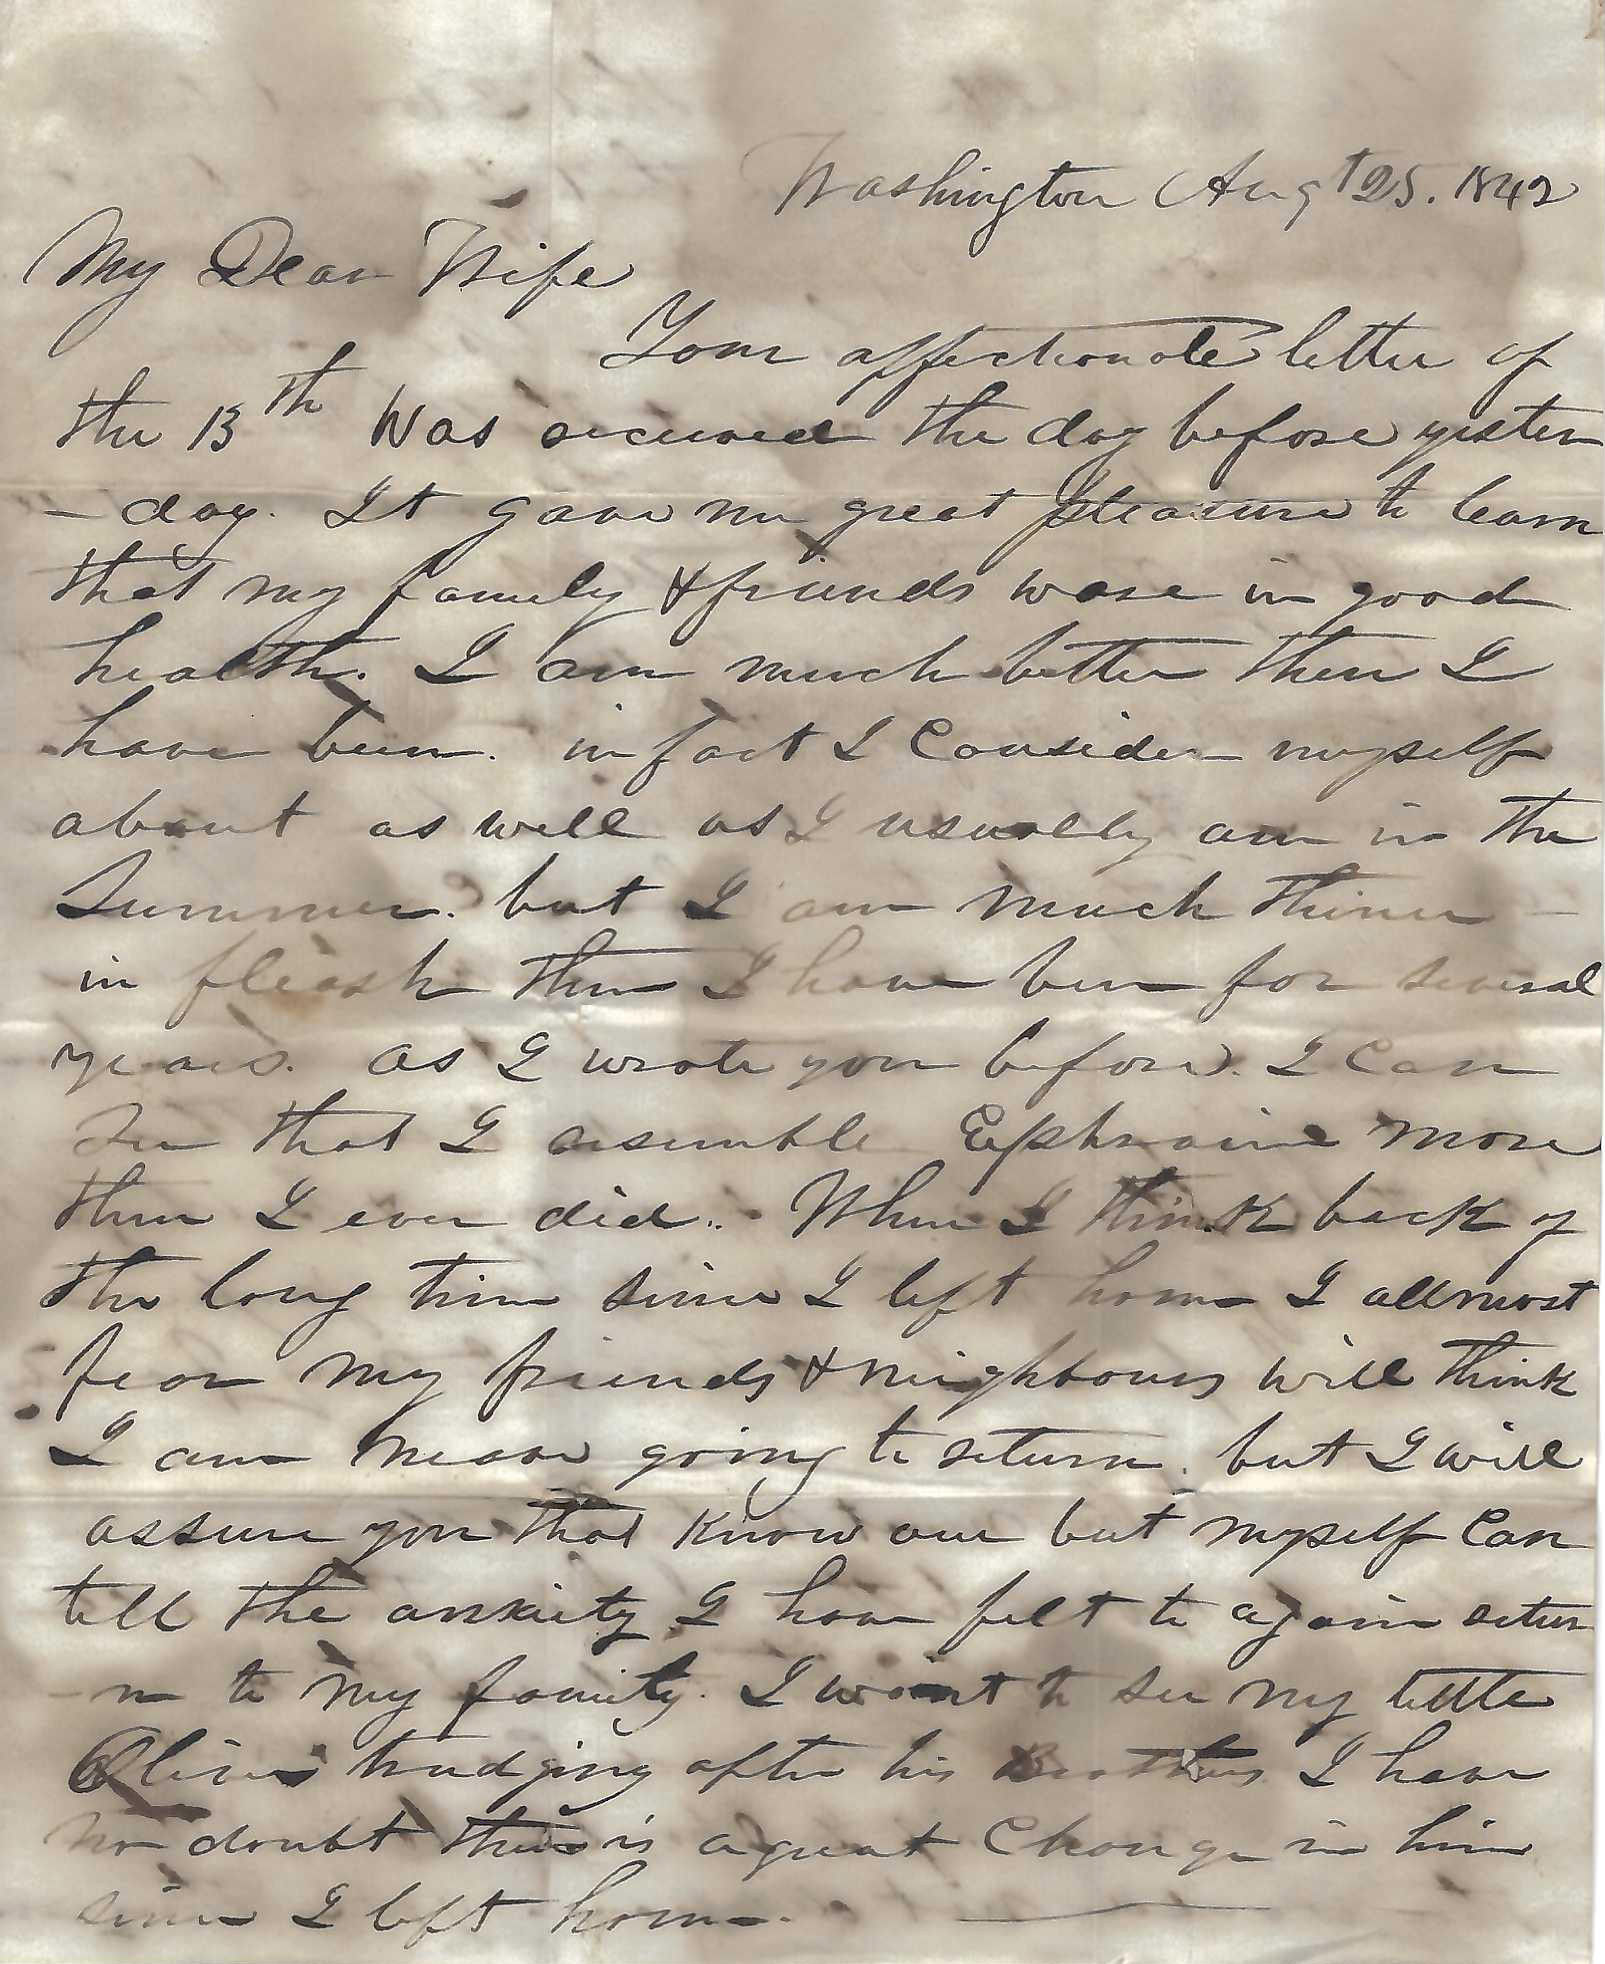 Washington Augt 25. 1842
My Dear Wife
Your affectionate letter of
the 13th Was received the day before yester
- day. It gave me great pleasure to learn
that my family & friends ware in good
health. I am much better then I
have been. in fact I Consider myself
about as well as I usually am in the
Summer. but I am much thiner -
in fleash then I have been for several
years. as I wrote you before. I Can
See that I resemble Ephraim more
then I ever did.. When I think back of
the long time since I left home I allmost
fear my friends & neighbours will think
I am never going to return. but I will
assure you that know one but myself Can
tell the anxiety I have felt to again retur
- n to my family. I want to see my little
Oliver trudging after his Brothers I have
no doubt there is a great Change in him
since I left home.